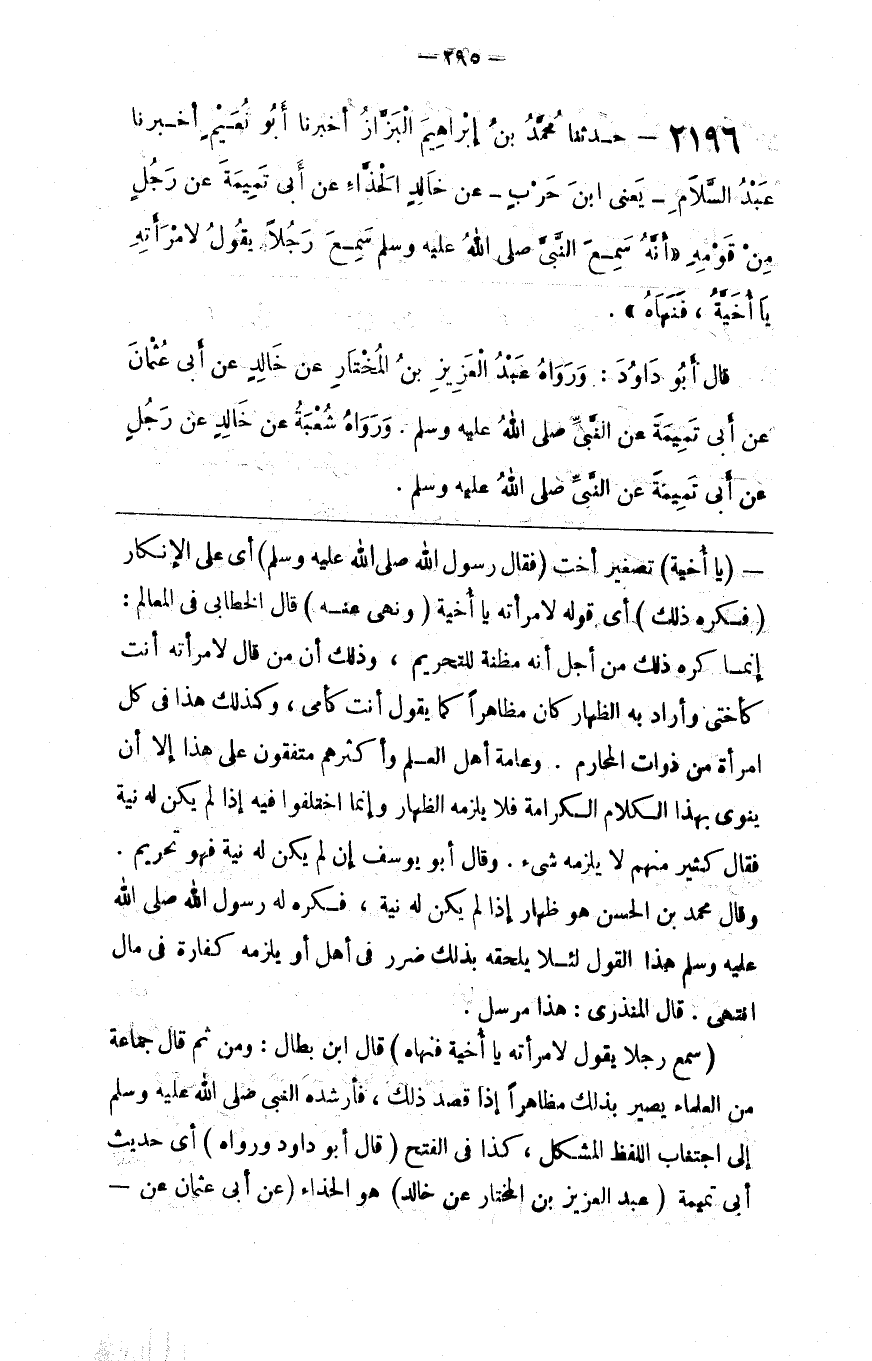 — ٢٩٥ —
٢١٩٦ — حدثنا مُحَمَّدُ بنُ إِبْرَاهِيمَ الْبَزَّازُ أخبرنا أَبُو نُعَيْمٍ أخبرنا
عَبْدُ السَّلَامِ ـ يَعنى ابنَ حَرْبٍ ـ عن خَالِدٍ الْحَذَّاءِ عن أَبى تَمِيمَةَ عن رَجُلٍ
مِنْ قَوْمِهِ «أَنَّهُ سَمِعَ النَّبىَّ صلى اللهُ عليه وسلم سَمِعَ رَجُلاً يقُولُ لامْرَأَتِهِ
يَا أُخَيَّةُ ، فَنَهَاهُ » .
قال أَبُو دَاوُدَ : وَرَوَاهُ عَبْدُ الْعَزِيزِ بنُ الْمُخْتَارِ عن خَالِدٍ عن أَبى عُثْمَانَ
عن أَبى تَمِيمَةَ عن النَّبىِّ صلى اللهُ عليه وسلم . وَرَوَاهُ شُعْبَةُ عن خَالِدٍ عن رَجُلٍ
عن أَبى تَمِيمَةَ عن النَّبىِّ صلى اللهُ عليه وسلم .
— (يا أُخية) تصغير أخت (فقال رسول الله صلى الله عليه وسلم) أى على الإنكار
( فكره ذلك ) أى قوله لامرأته يا أُخية ( ونهى عنه ) قال الخطابى فى المعالم :
إنما كره ذلك من أجل أنه مظنة للتحريم ، وذلك أن من قال لامرأته أنت
كأختى وأراد به الظهار كان مظاهراً كما يقول أنت كأمى ، وكذلك هذا فى كل
امرأة من ذوات المحارم . وعامة أهل العلم وأكثرهم متفقون على هذا إلا أن
ينوى بهذا الكلام الكرامة فلا يلزمه الظهار وإنما اختلفوا فيه إذا لم يكن له نية
فقال كثير منهم لا يلزمه شىء . وقال أبو يوسف إن لم يكن له نية فهو تحريم .
وقال محمد بن الحسن هو ظهار إذا لم يكن له نية ، فكره له رسول الله صلى الله
عليه وسلم هذا القول لئلا يلحقه بذلك ضرر فى أهل أو يلزمه كفارة فى مال
انتهى . قال المنذرى : هذا مرسل .
( سمع رجلا يقول لامرأته يا أُخية فنهاه ) قال ابن بطال : ومن ثم قال جماعة
من العلماء يصير بذلك مظاهراً إذا قصد ذلك ، فأرشده النبى صلى الله عليه وسلم
إلى اجتناب اللفظ المشكل ، كذا فى الفتح ( قال أبو داود ورواه ) أى حديث
أبى تميمة ( عبد العزيز بن المختار عن خالد) هو الحذاء (عن أبى عثمان عن —